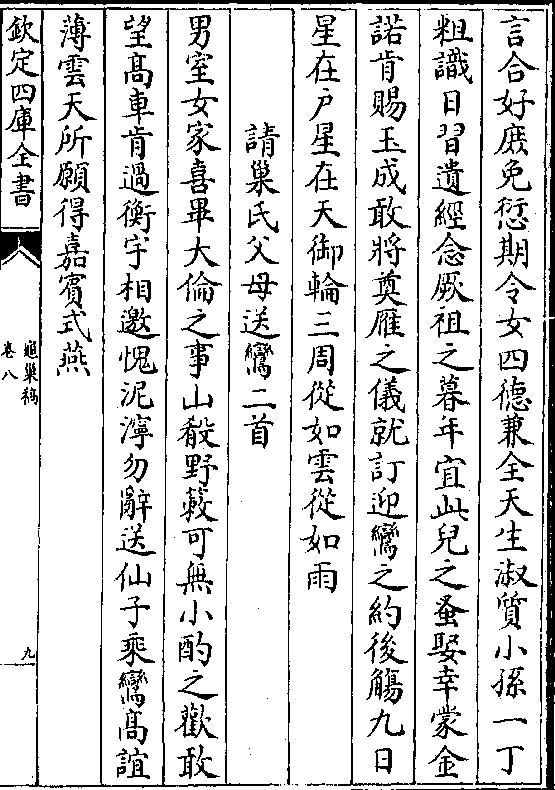 言合好庶免愆期令女四德兼全天生淑質小孫一丁
粗識日習遺經念厥祖之暮年宜此兒之蚤娶幸蒙金
諾肯賜玉成敢將奠雁之儀就訂迎鸞之約後觴九日
星在户星在天御輪三周從如雲從如雨
請巢氏父母送鸞二首
男室女家喜畢大倫之事山殽野蔌可無小酌之歡敢
望髙車肯過衡宇相邀愧泥濘勿辭送仙子乘鸞髙誼
薄雲天所願得嘉賓式燕
欽定四庫全書
龜巢稿
卷八
九